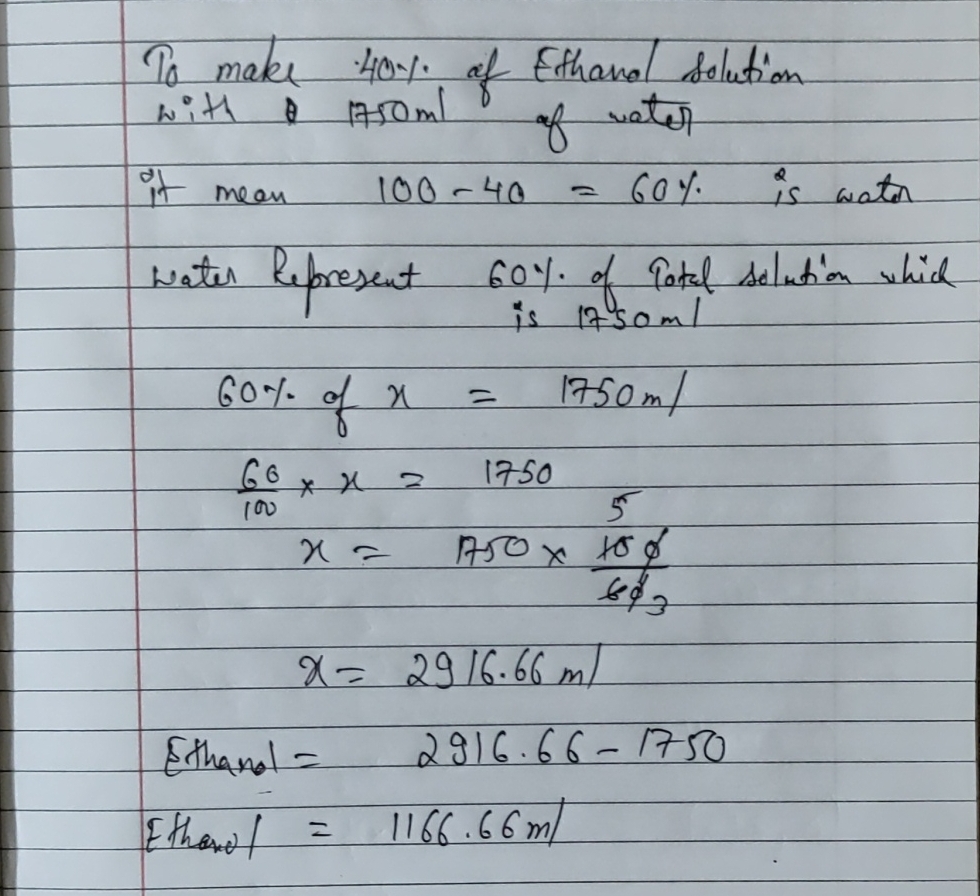 To make 40% of Ethanol solution
with 1750ml of water
it mean 100 - 40 = 60% is water
water Represent 60% of Total solution which
is 1750ml
60% of x = 1750ml
60/100 × x = 1750
x = 1750 × 100/60 5 3
x = 2916.66 ml
Ethanol = 2916.66 - 1750
Ethanol = 1166.66ml